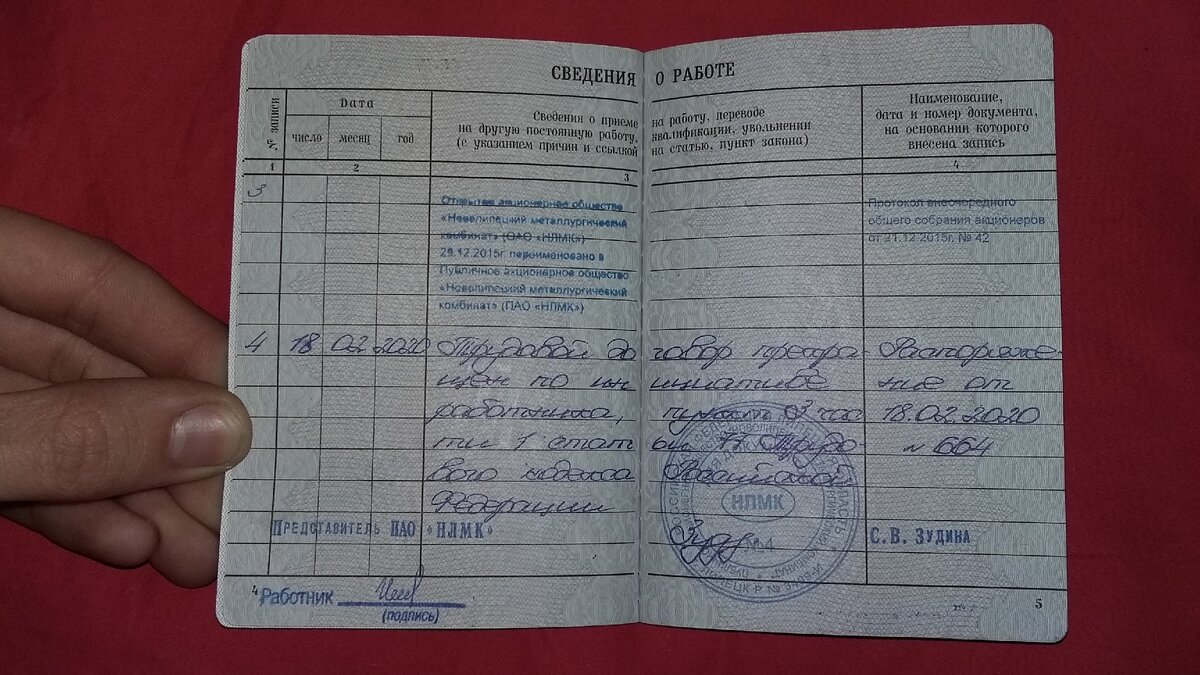 СВЕДЕНИЯ О РАБОТЕ
№ записи
Дата
число месяц год
Сведения о приеме на работу, переводе
на другую постоянную работу, квалификации, увольнении
(с указанием причин и ссылкой на статью, пункт закона)
Наименование,
дата и номер документа,
на основании которого
внесена запись
1 2 3 4
3
Открытое акционерное общество
«Новолипецкий металлургический
комбинат» (ОАО «НЛМК»)
29.12.2015г. переименовано в
Публичное акционерное общество
«Новолипецкий металлургический
комбинат» (ПАО «НЛМК»)
Протокол внеочередного
общего собрания акционеров
от 21.12.2015г. № 42
4 18 02 2020 Трудовой до говор прекра- Распоряже-
щен по ин ициативе ние от
работника, пункт 3 час 18.02.2020
ти 1 стат ьи 77 Трудо № 664
вого кодекса Российской
Федерации
ПРЕДСТАВИТЕЛЬ ПАО «НЛМК» С.В. ЗУДИНА
НЛМК
№4
4 Работник
(подпись)
5